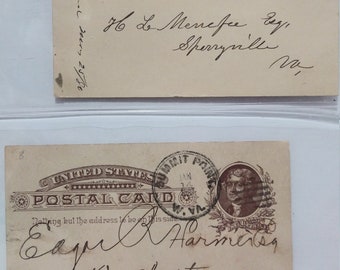 H L Menefee Esq.
Sperryville
Va,
UNITED STATES
POSTAL CARD
Nothing but the address to be on this side
SUMMIT POINT
W. VA.
Edgar R Farmer Esq